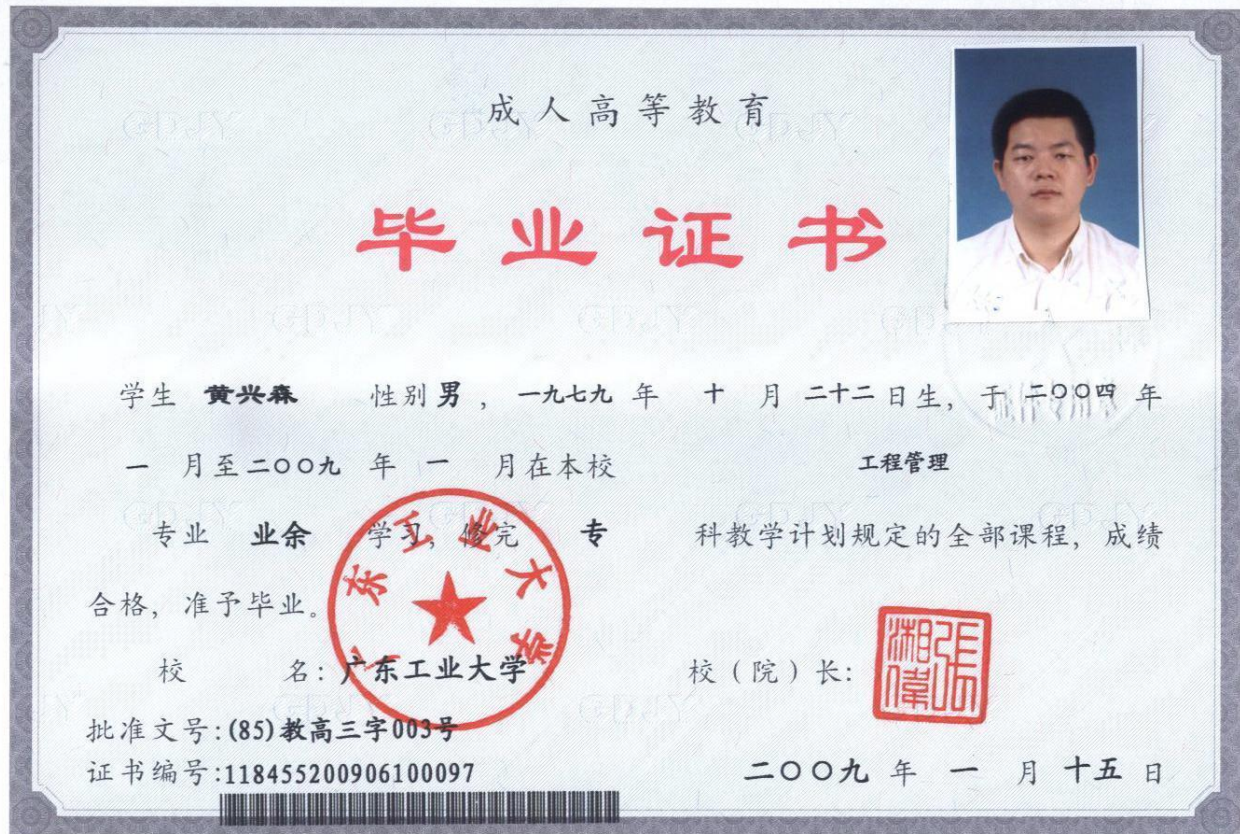 成人高等教育
毕业证书
学生 黄兴森 性别 男 , 一九七九 年 十 月 二十二 日生, 于 二〇〇四 年
一 月至 二〇〇九 年 一 月在本校 工程管理
专业 业余 学习, 修完 专 科教学计划规定的全部课程, 成绩
合格, 准予毕业。
广东工业大学
校 名: 广东工业大学 校(院)长:
張湘偉
批准文号:(85)教高三字003号
证书编号:118455200906100097 二〇〇九 年 一 月 十五 日